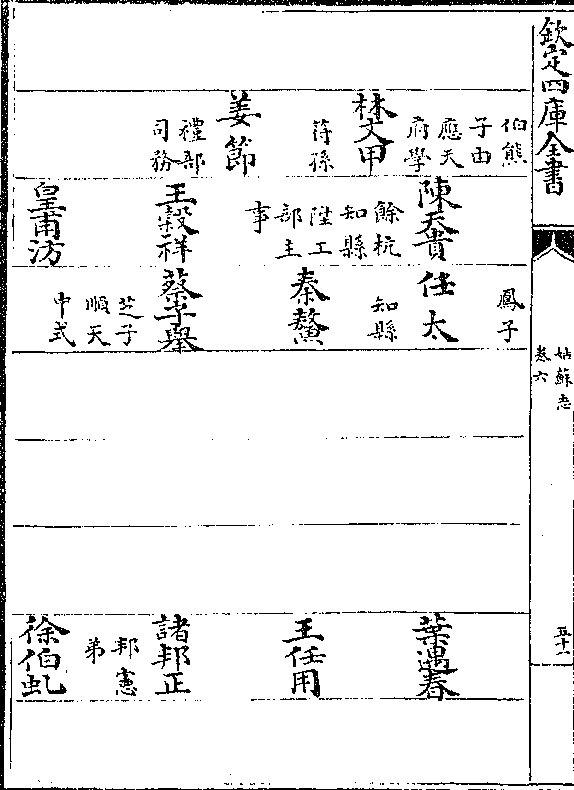 欽定四庫全書
姑蘇志
卷六
五十二
伯熊
子由
應天
府學
林文甲
符孫
姜節
禮部
司務
陳天貴
餘杭
知縣
陞工
部主
事
王穀祥
皇甫汸
鳳子
任太
知縣
秦鰲
蔡子舉
芝子
順天
中式
葉遇春
王任用
諸邦正
邦憲
弟
徐伯虬